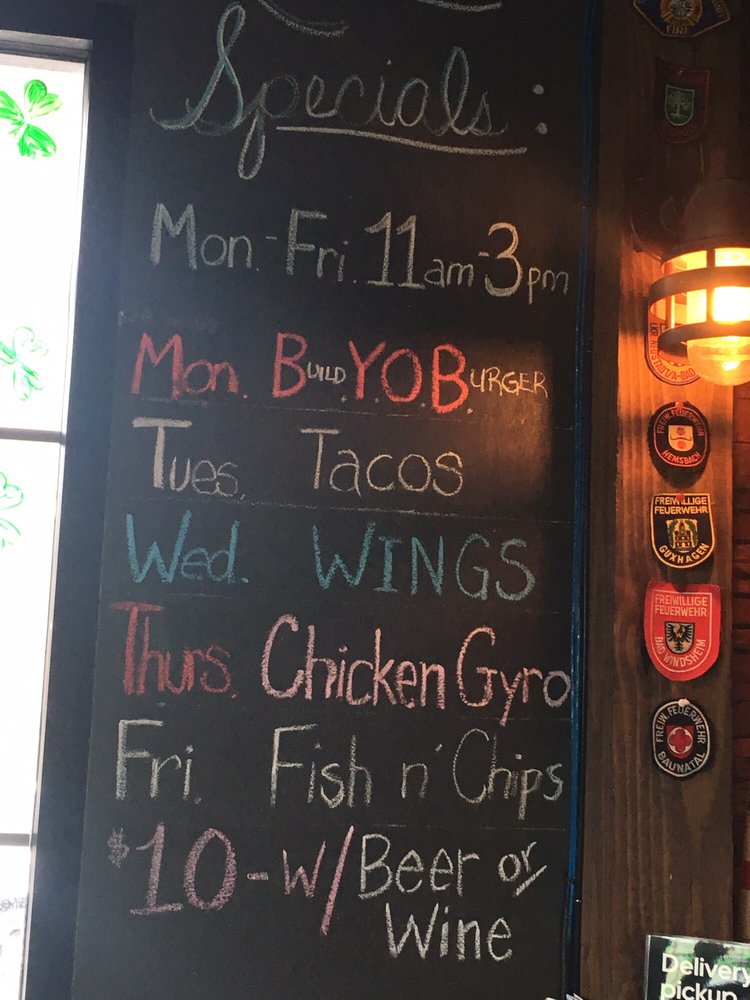 Specials:
Mon.-Fri. 11am-3pm
Mon. Build.Y.O.Burger
Tues. Tacos
Wed. WINGS
Thurs. Chicken Gyro
Fri. Fish n' Chips
$10-w/Beer or
Wine
FIRE
FREIW. FEUERWEHR
HEMSBACH
FREIWILLIGE
FEUERWEHR
GUXHAGEN
FREIWILLIGE
FEUERWEHR
BAD WINDSHEIM
FREIW. FEUERWEHR
BAUNATAL
Delivery
pickup